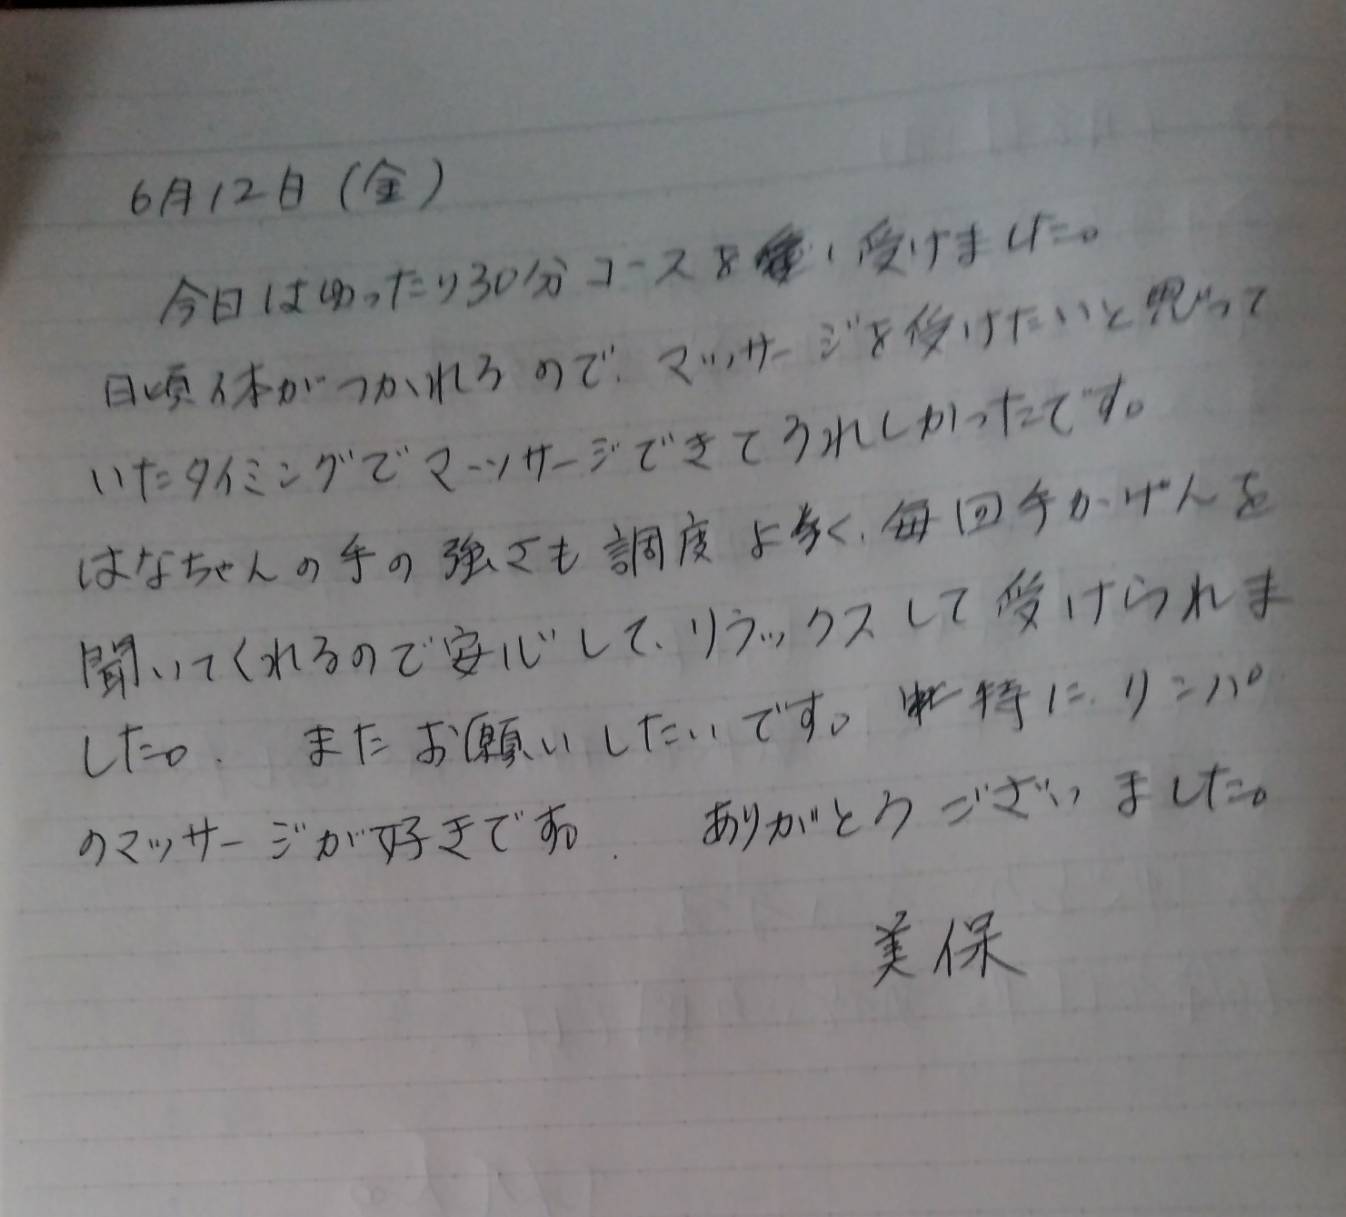 6月12日(金)
今日はゆったり30分コースを受けました。
日頃体がつかれるので、マッサージを受けたいと思って
いたタイミングでマッサージできてうれしかったです。
はなちゃんの手の強さも調度よく、毎回手かげんを
聞いてくれるので安心して、リラックスして受けられま
した。またお願いしたいです。特に、リンパ
のマッサージが好きです。ありがとうございました。
美保